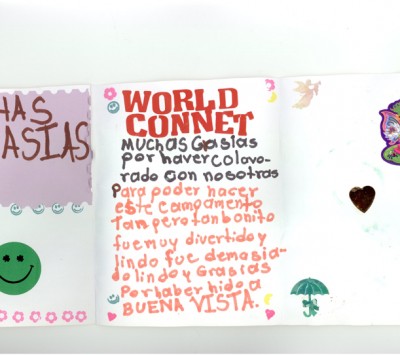 HAS
ASIAS
WORLD
CONNET
MUCHAS Grasias
por haver colavo-
rado con nosotras
Para poder hacer
este campamento
Tam pero tan bonito
fue muy divertido y
lindo fue demasia-
do lindo y Grasias
Por haber hido a
BUENA VISTA.